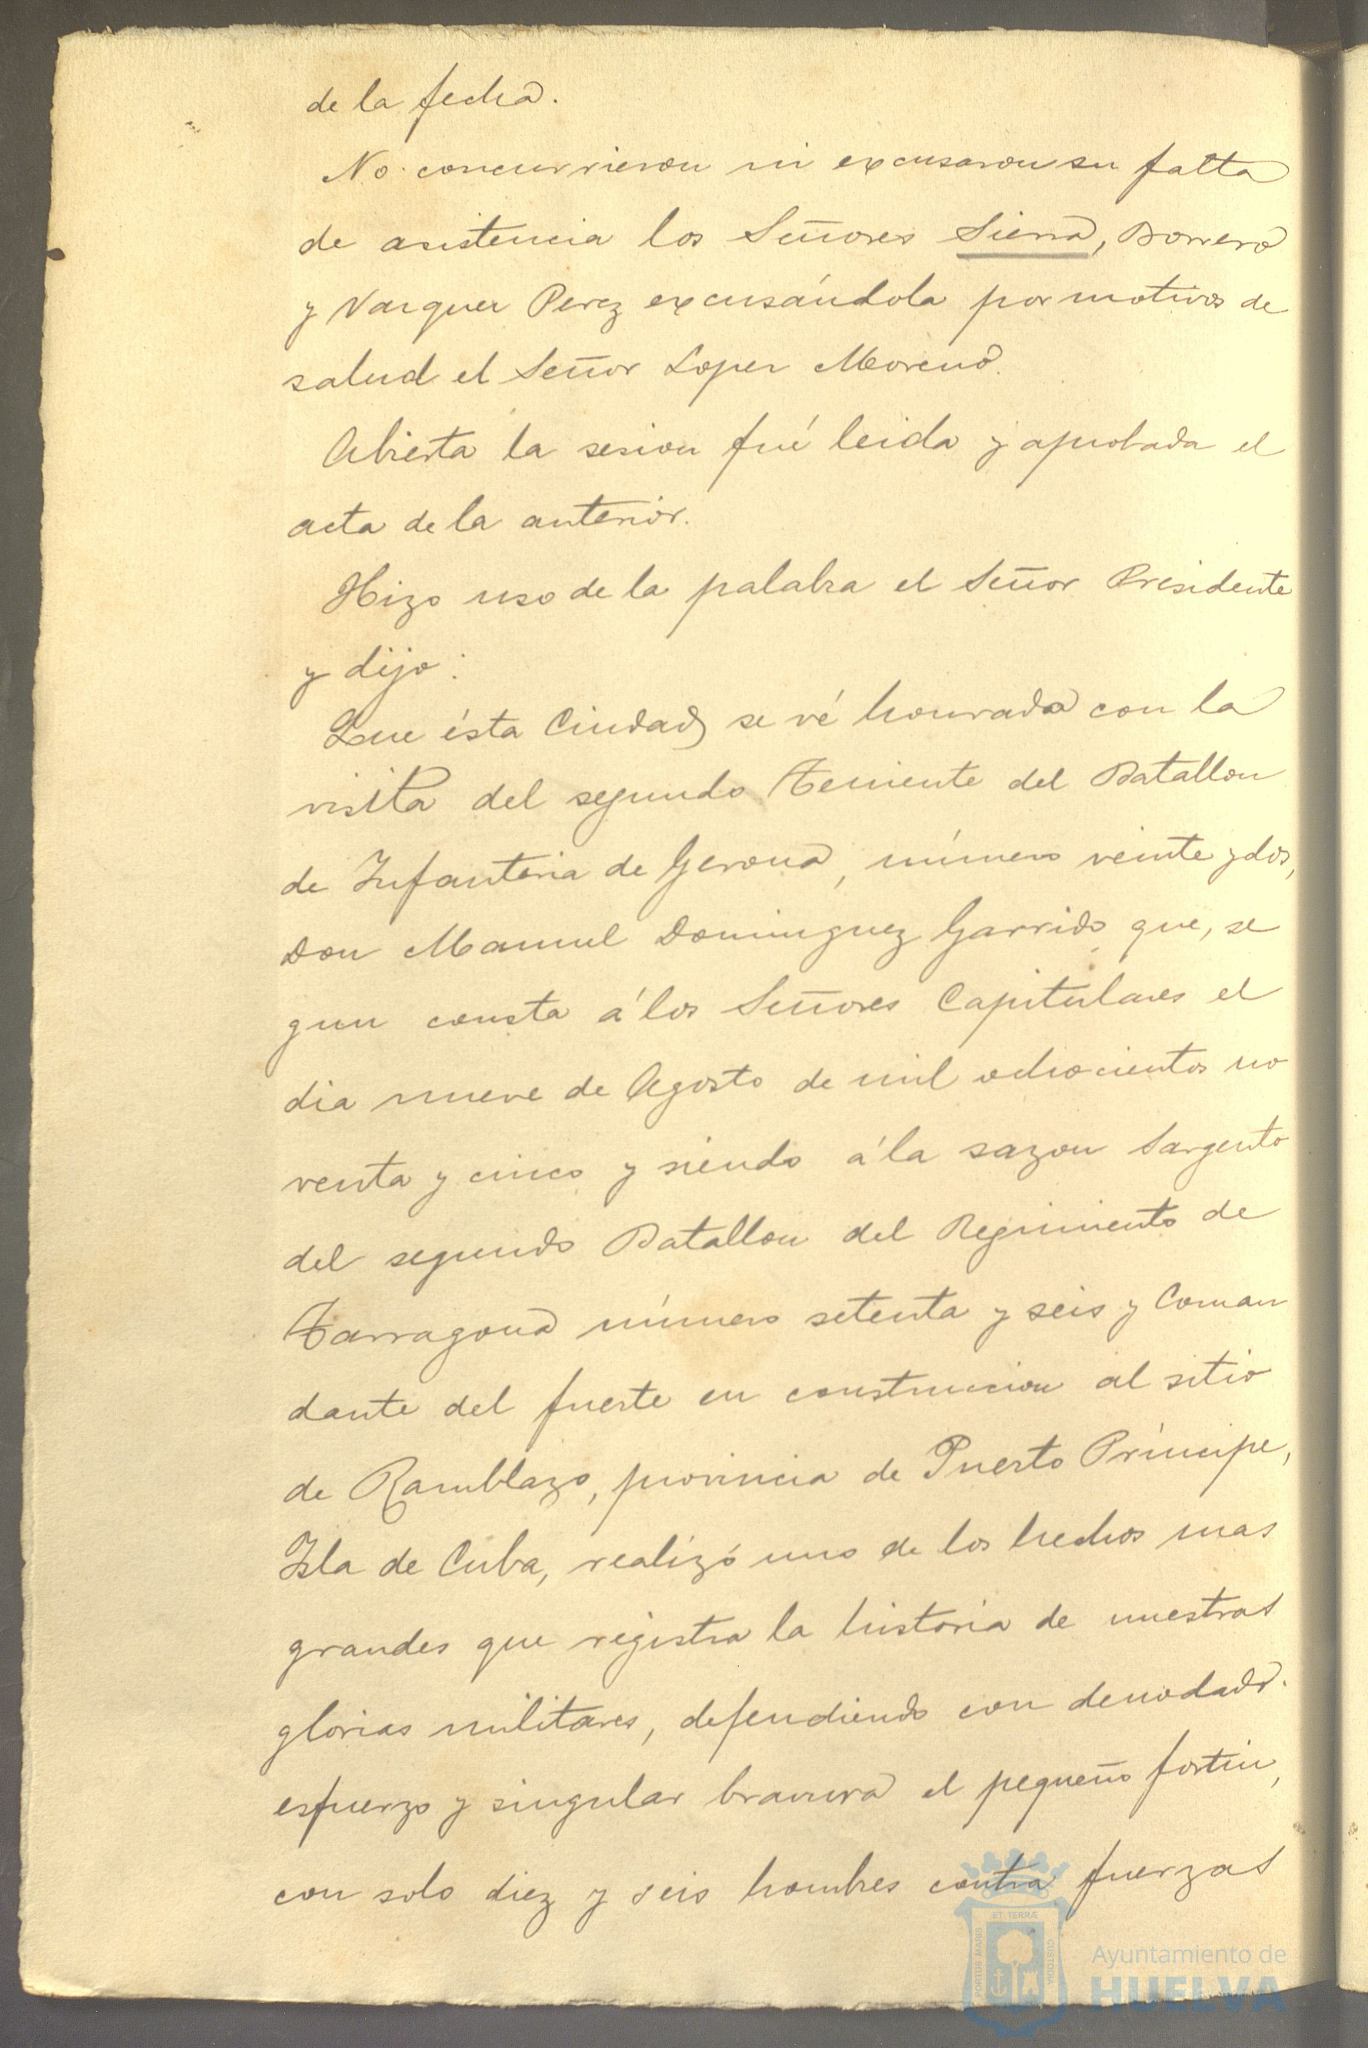 de la fecha.
No concurrieron ni excusaron su falta
de asistencia los Señores Sierra, Borrero
y Vazquez Perez excusándola por motivos de
salud el Señor Lopez Moreno.
Abierta la sesion fué leida y aprobada el
acta de la anterior.
Hizo uso de la palabra el Señor Presidente
y dijo:
Que ésta Ciudad se vé honrada con la
visita del segundo Teniente del Batallon
de Infanteria de Gerona, número veinte y dos,
Don Manuel Dominguez Garrido que, se
gun consta á los Señores Capitulares el
dia nueve de Agosto de mil ochocientos no
venta y cinco y siendo á la sazon Sargento
del segundo Batallon del Regimiento de
Tarragona número setenta y seis y Coman
dante del fuerte en construccion al sitio
de Ramblazo, provincia de Puerto Príncipe,
Isla de Cuba, realizó uno de los hechos mas
grandes que registra la historia de nuestras
glorias militares, defendiendo con denodado
esfuerzo y singular bravura el pequeño fortin,
con solo diez y seis hombres contra fuerzas
PORTUS MARIS
ET TERRÆ
CUSTODIA
Ayuntamiento de
HUELVA